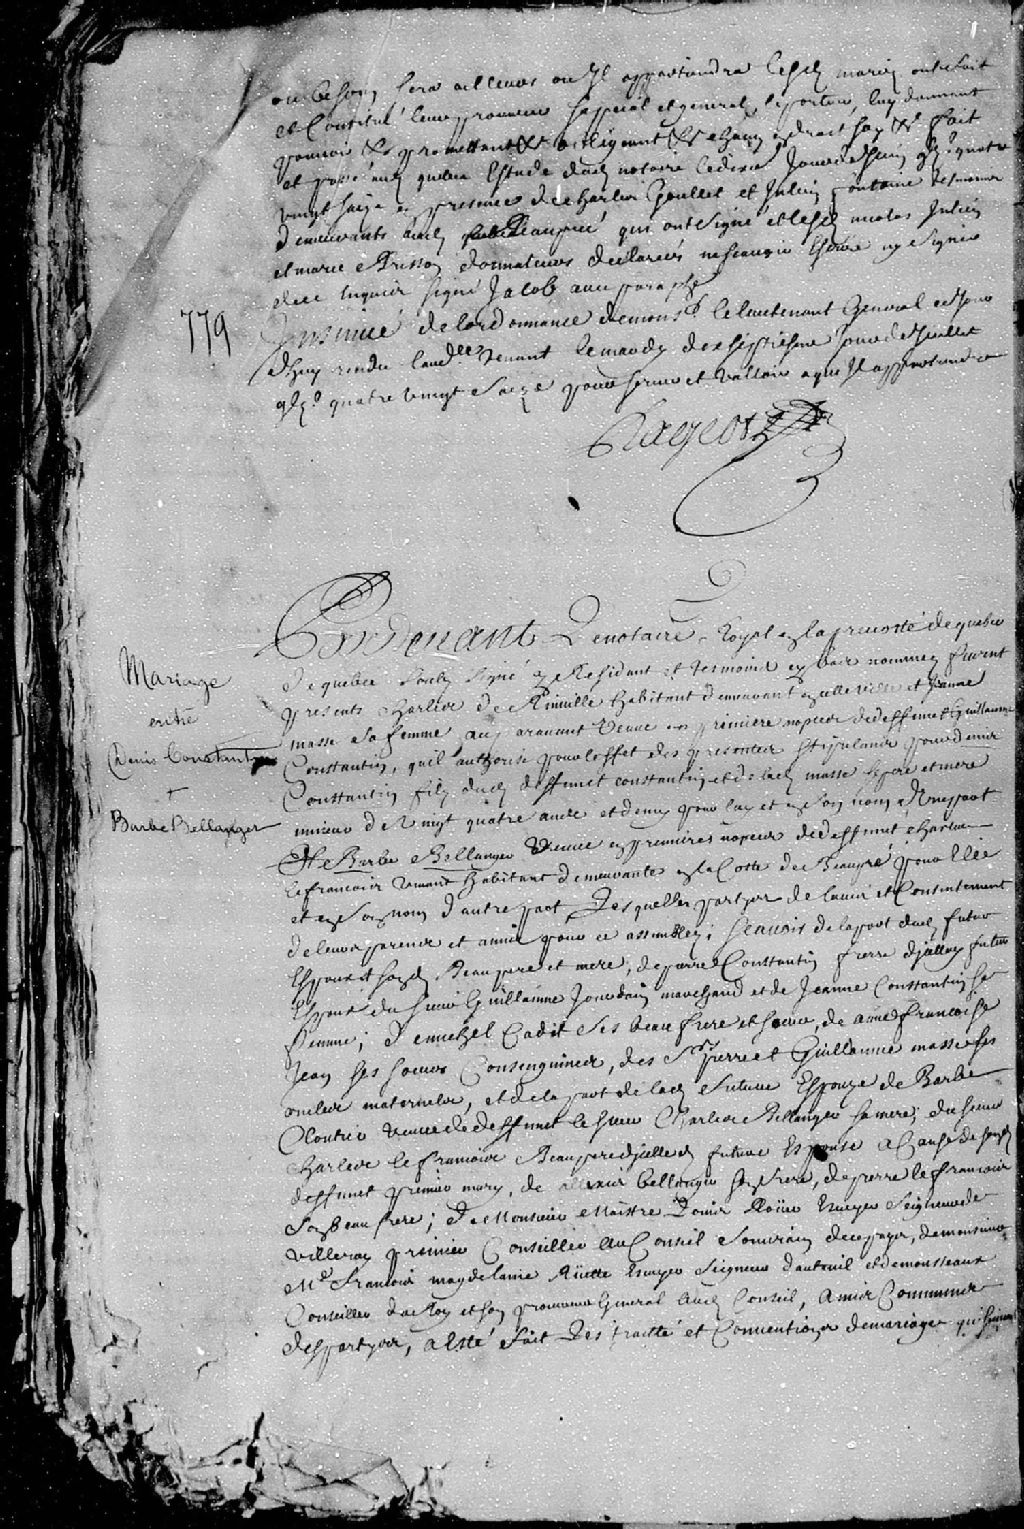 ou besoing sera ailleurs ou Il appartiendra lesd mariez ont fait
et Constitué leur procureur speciál et general, le porteur, luy donnant
pouvoir &c promettant &c obligeant &c chacun endroit soy &c fait
et passé aud quebec Estude dud notaire le dix Jour de Juin gbj quatre
vingt saize en presence de charles Goullet et Julien fontaine tesmoins
demeurants aud Beaupré qui ont signé et lesd nicolas Julien
et marie Brisson donnateurs declarées ne scavoir Escrire ny signer
dece Enquis signé Jacob avec paraphe
779
Insinué de lordonnance de mons.r le lieutenant General ce Jour
dhuy rendu laud.ce tenant le mardy dexseptiesme Jour de Juillet
gbj.c quatre vingt saeze pour servir et valloir a que Il appartiendra
Rageot
Pardevant Le notaire Royal en la prevosté de quebec
Mariage
entre
Denis Constantin
+
Barbe Bellanger
de quebec soubz signé y Residant et tesmoins en bas nommez furent
presents charles de Rinville habitant demeurant en cette ville et Jeanne
masse sa femme auparavant veuve en premiere nopces de deffunct Guillaume
Constantin, quil authorise pour leffet des presentes stipulants pour denis
Constantin fils dud deffunct constantin et de lad masse ses pere et mere
mineur de vingt quatre ans et demy pour luy et en son nom dune part
Et Barbe Bellanger veuve en premieres nopces de deffunct charles
lefrancois vivant habitant demeurante en la Coste de Beaupré pour Elle
et en son nom dautre part, Lesquelles partyes de lavis et Consentement
de leurs parens et amis pour ce assemblez; scavoir de la part dud futur
Espoux de sesd Beaupere et mere, de pierre Constantin frere djcelluy futur
Espoux du sieur Guillaume Jourdain marchand et de Jeanne Constantin sa
femme; de michel Cadit ses beau frere et soeur, de anne francoise
Jean ses soeurs Consenguines, des Srs pierre et Guillaume masse ses
oncles maternels, et de la part de lad future Espouze de Barbe
Cloutier veuve de deffunct le sieur Charles Bellanger sa mere; du sieur
charles lefrancois Beaupere djcelle d future Espouse a Cause de sond
deffunct premier mary, de allexis bellanger son frere, de pierre lefrancois
son beau frere; de Monsieur Maistre Louis Roüer Escuyer Seigneur de
villeray premier Conseiller au Conseil Souverain de ce pays, de monsieur
M.e francois magdelaine Rüette Escuyer Seigneur dauteuil et de mousseaux
Conseiller du Roy et son procureur General aud Conseil, amis Communs
desd partyes, a Esté fait Les traitté et Conventions de mariage qui suivent